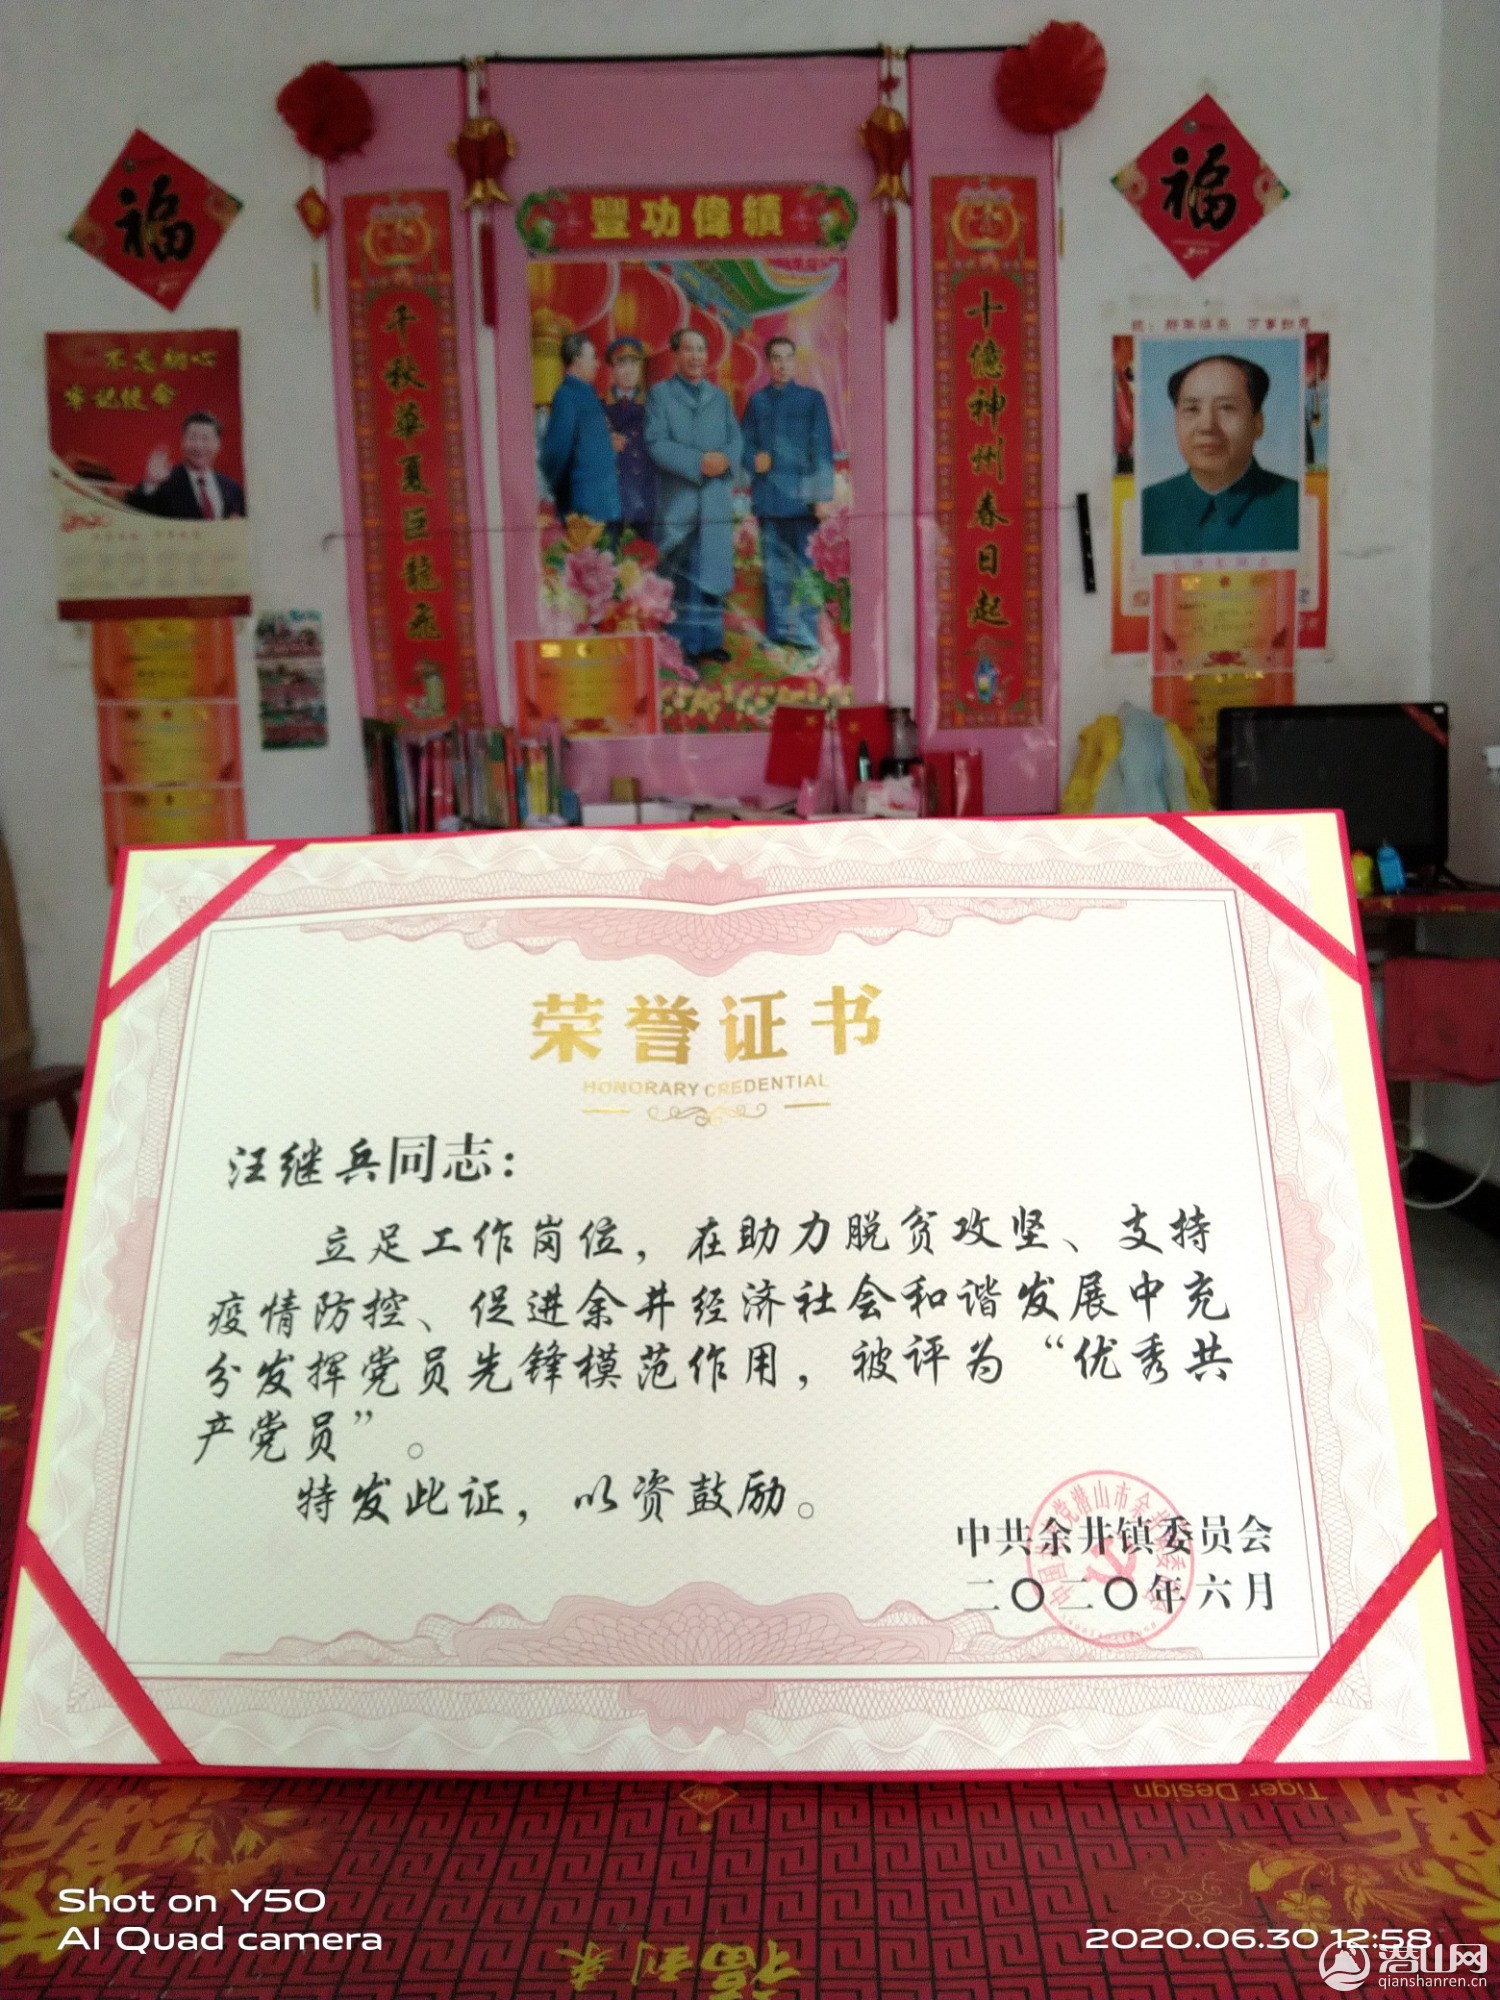 豐功偉績
福
福
千秋華夏巨龍飛
十億神州春日起
不忘初心
牢记使命
荣誉证书
HONORARY CREDENTIAL
汪继兵同志：
立足工作岗位，在助力脱贫攻坚、支持
疫情防控、促进余井经济社会和谐发展中充
分发挥党员先锋模范作用，被评为“优秀共
产党员”。
特发此证，以资鼓励。
中共余井镇委员会
二〇二〇年六月
Tiger Design
福到来
Shot on Y50
AI Quad camera
2020.06.30 12:58
潜山网
qianshanren.cn